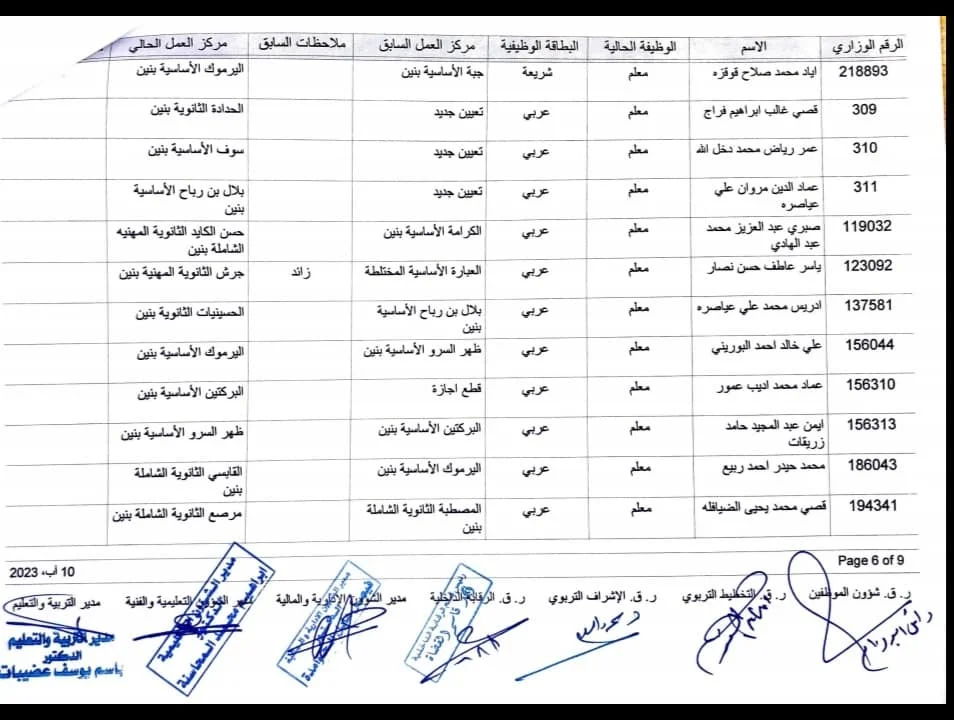 الرقم الوزاري الاسم الوظيفة الحالية البطاقة الوظيفية مركز العمل السابق ملاحظات السابق مركز العمل الحالي
218893 اياد محمد صلاح قوقزه معلم شريعة جبة الأساسية بنين اليرموك الأساسية بنين
309 قصي غالب ابراهيم فراج معلم عربي تعيين جديد الحدادة الثانوية بنين
310 عمر رياض محمد دخل الله معلم عربي تعيين جديد سوف الأساسية بنين
311 عماد الدين مروان علي معلم عربي تعيين جديد بلال بن رباح الأساسية
عياصره بنين
119032 صبري عبد العزيز محمد معلم عربي الكرامة الأساسية بنين حسن الكايد الثانوية المهنيه
عبد الهادي الشاملة بنين
123092 ياسر عاطف حسن نصار معلم عربي العبارة الأساسية المختلطة زائد جرش الثانوية المهنية بنين
137581 ادريس محمد علي عياصره معلم عربي بلال بن رباح الأساسية الحسينيات الثانوية بنين
بنين
156044 علي خالد احمد البوريني معلم عربي ظهر السرو الأساسية بنين اليرموك الأساسية بنين
156310 عماد محمد اديب عمور معلم عربي قطع اجازة البركتين الأساسية بنين
156313 ايمن عبد المجيد حامد معلم عربي البركتين الأساسية بنين ظهر السرو الأساسية بنين
زريقات
186043 محمد حيدر احمد ربيع معلم عربي اليرموك الأساسية بنين القابسي الثانوية الشاملة
بنين
194341 قصي محمد يحيى الضيافله معلم عربي المصطبة الثانوية الشاملة مرصع الثانوية الشاملة بنين
بنين
Page 6 of 9
10 آب، 2023
ر. ق. شؤون الموظفين ر. ق. التخطيط التربوي ر. ق. الإشراف التربوي ر. ق. الرقابة الداخلية مدير الشؤون الإدارية والمالية مدير الشؤون التعليمية والفنية مدير التربية والتعليم
مدير التربية والتعليم
الدكتور
باسم يوسف عضيبات